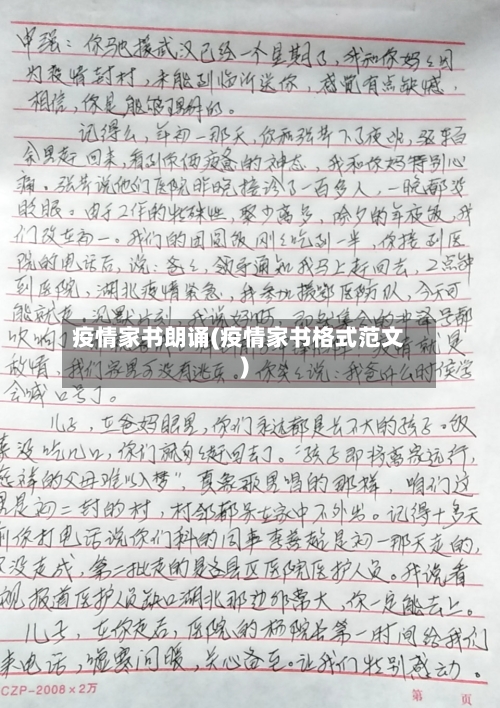 申强：你驰援武汉已经一个星期了，我和你妈妈因
为疫情封村，未能到临沂送你，感觉有点缺憾，
相信，你是能够理解的。
记得么，年初一那天，你和强荣下了夜班，驱车百
余里赶回来，看到你俩疲惫的神态，我和你妈特别心
痛。强荣说他们医院昨晚接诊了一百多人，一晚都没
眨眼。由于工作的特殊性，聚少离多，除夕的年夜饭，我
们改在初一。我们的团圆饭刚刚吃到一半，你接到医
院的电话后，说：爸爸，领导通知我马上赶回去，2点钟
到医院，湖北疫情紧急，我参加援鄂医疗队，今天可
能就走
吹响
疫情家书朗诵(疫情家书格式范文
)
疫情就是
敌情，我们家里可没有逃兵。你笑笑说：我爸什么时侯还
会喊口号了。
儿子，在爸妈眼里，你们永远都是长不大的孩子。饭
没吃几口，你们就匆匆赶回去了。“孩子即将离家远行，
的父母难以入梦”，真象歌里唱的那样，咱们这
是初二封的村，村邻都呆在家中不外出。记得十多天
前你打电话说你们科的同事李善超是初一那天走的，
没走成，第二批走的是各县区医院医护人员。我说看
视报道医护人员缺口湖北那边非常大，你一定能去上。
儿子，在你走后，医院的杨院长第一时间给我们
来电话，嘘寒问暖，关心备至。让我们特别感动。
CZP-2008×2万
第 页